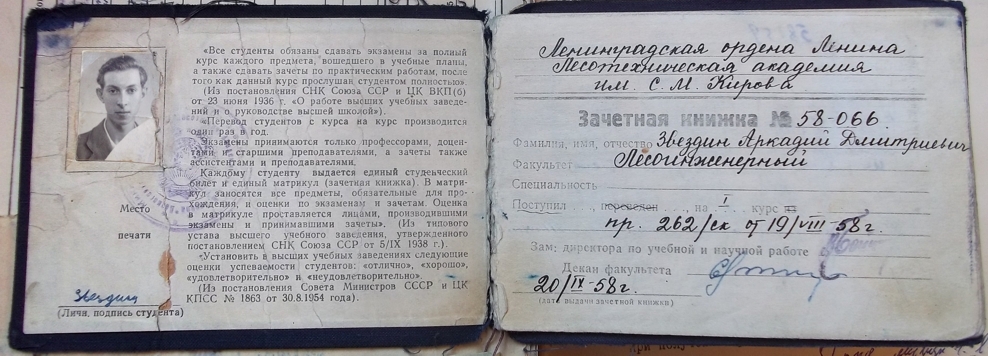 «Все студенты обязаны сдавать экзамены за полный
курс каждого предмета, вошедшего в учебные планы,
а также сдавать зачеты по практическим работам, после
того как данный курс прослушан студентом полностью».
(Из постановления СНК Союза ССР и ЦК ВКП(б)
от 23 июня 1936 г. «О работе высших учебных заведе-
ний и о руководстве высшей школой»).
«Перевод студентов с курса на курс производится
один раз в год.
Экзамены принимаются только профессорами, доцен-
тами и старшими преподавателями, а зачеты также
ассистентами и преподавателями.
Каждому студенту выдается единый студенческий
билет и единый матрикул (зачетная книжка). В матри-
кул заносятся все предметы, обязательные для про-
хождения, и оценки по экзаменам и зачетам. Оценка
в матрикуле проставляется лицами, производившими
экзамены и принимавшими зачеты». (Из типового
устава высшего учебного заведения, утвержденного
постановлением СНК Союза ССР от 5/IX 1938 г.).
«Установить в высших учебных заведениях следующие
оценки успеваемости студентов: «отлично», «хорошо»,
«удовлетворительно» и «неудовлетворительно».
(Из постановления Совета Министров СССР и ЦК
КПСС № 1863 от 30.8.1954 года).
Место
печати
Звездин
(Личн. подпись студента)
Ленинградская ордена Ленина
Лесотехническая академия
им. С. М. Кирова
Зачетная книжка № 58-066
Фамилия, имя, отчество Звездин Аркадий Дмитриевич
Факультет Лесоинженерный
Специальность
Поступил переведен на I курс из
пр. 262/ск от 19/VIII-58 г.
Зам. директора по учебной и научной работе
Декан факультета
20/IX-58 г.
(дата выдачи зачетной книжки)